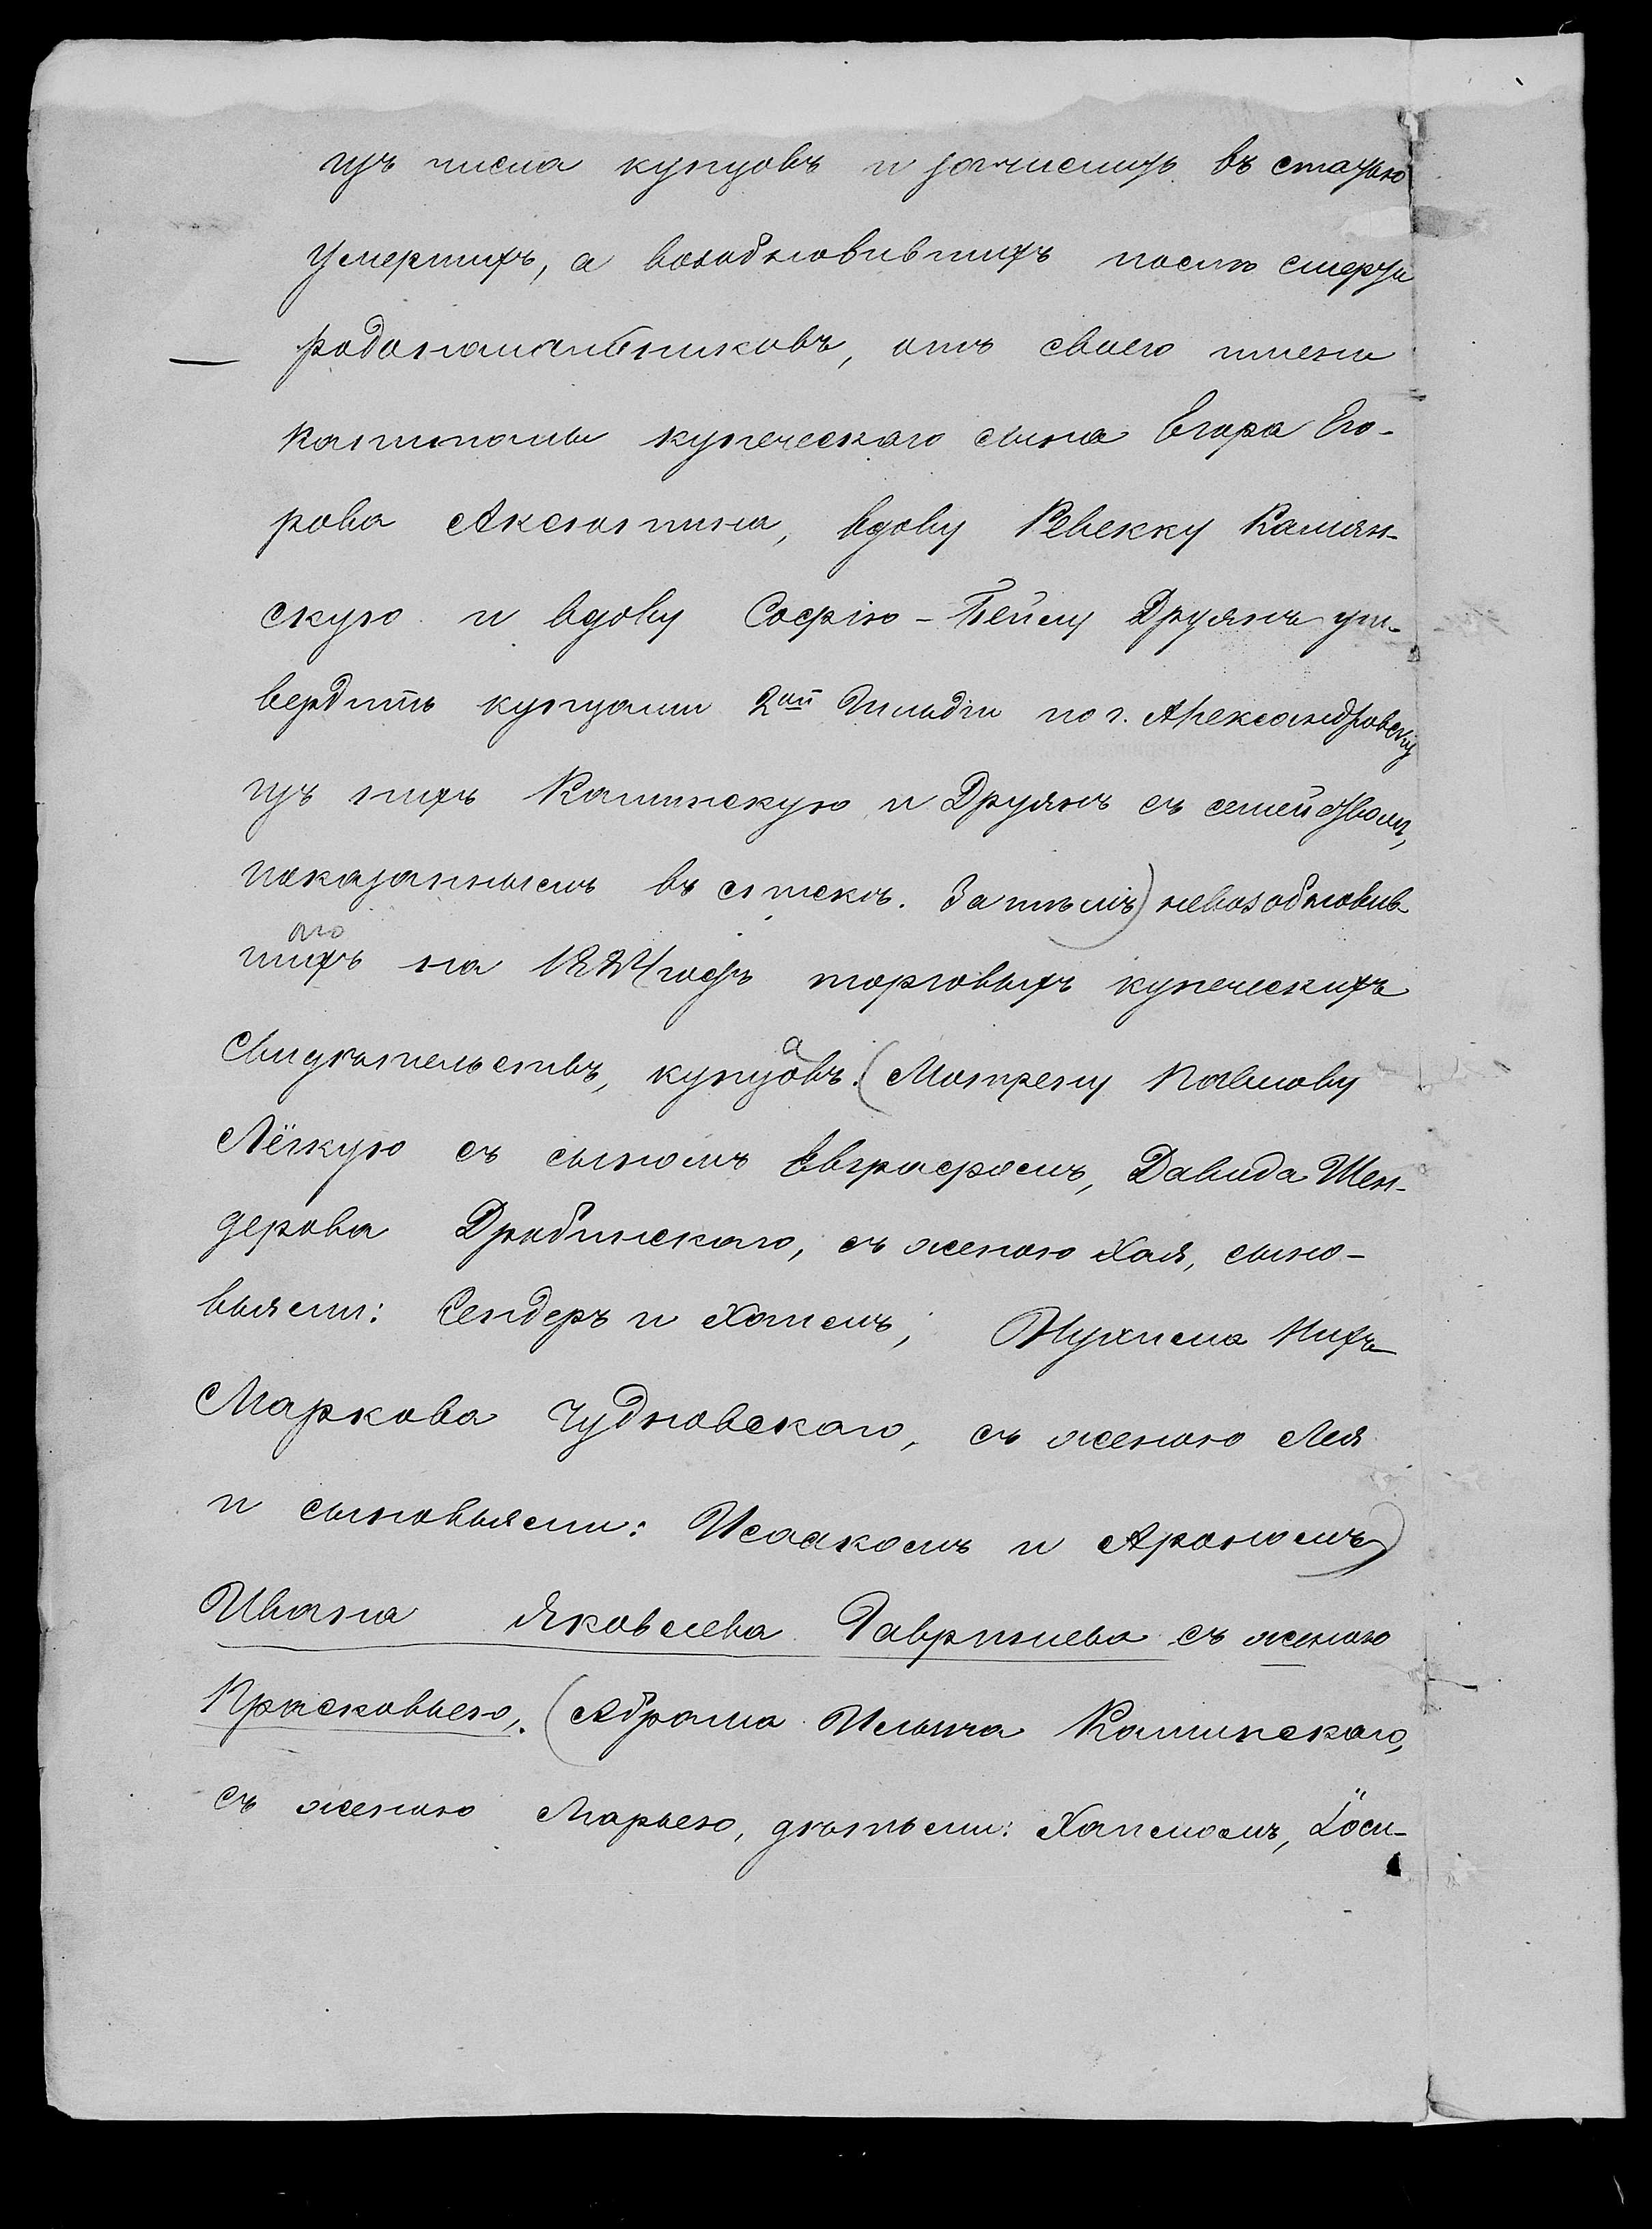 изъ числа купцовъ и зачислить въ статью
умершихъ, а возобновившихъ после смерти
родоначальниковъ, отъ своего имени
капиталы купеческаго сына Егора Его-
рова Аксютина, вдову Ревекку Камян-
скую и вдову Софію-Бейлу Друянъ ут-
вердить купцами 2ой Гильдіи по г. Александровску
изъ нихъ Каминскую и Друянъ съ семействомъ,
показаннымъ въ спискѣ. Затѣмъ) невозобновив
шихъ
аго
на 1884 годъ торговыхъ купеческихъ
свидѣтельствъ, купцовъ
а
(Матрену Павлову
Лёгкую съ сыномъ Евграфомъ, Давида Шен-
дерова Дробинскаго, съ женою Хая, сыно-
вьями: Сендеръ и Хаимъ,
Маркова Чудновскаго, съ женою Лея
и сыновьями: Исаакомъ и Арономъ)
Ивана Яковлева Гаврилиева съ женою
Прасковьею, (Абрама Ильича Каминскаго,
съ женою Марьею, дѣтьми: Хаимомъ, Іоси-